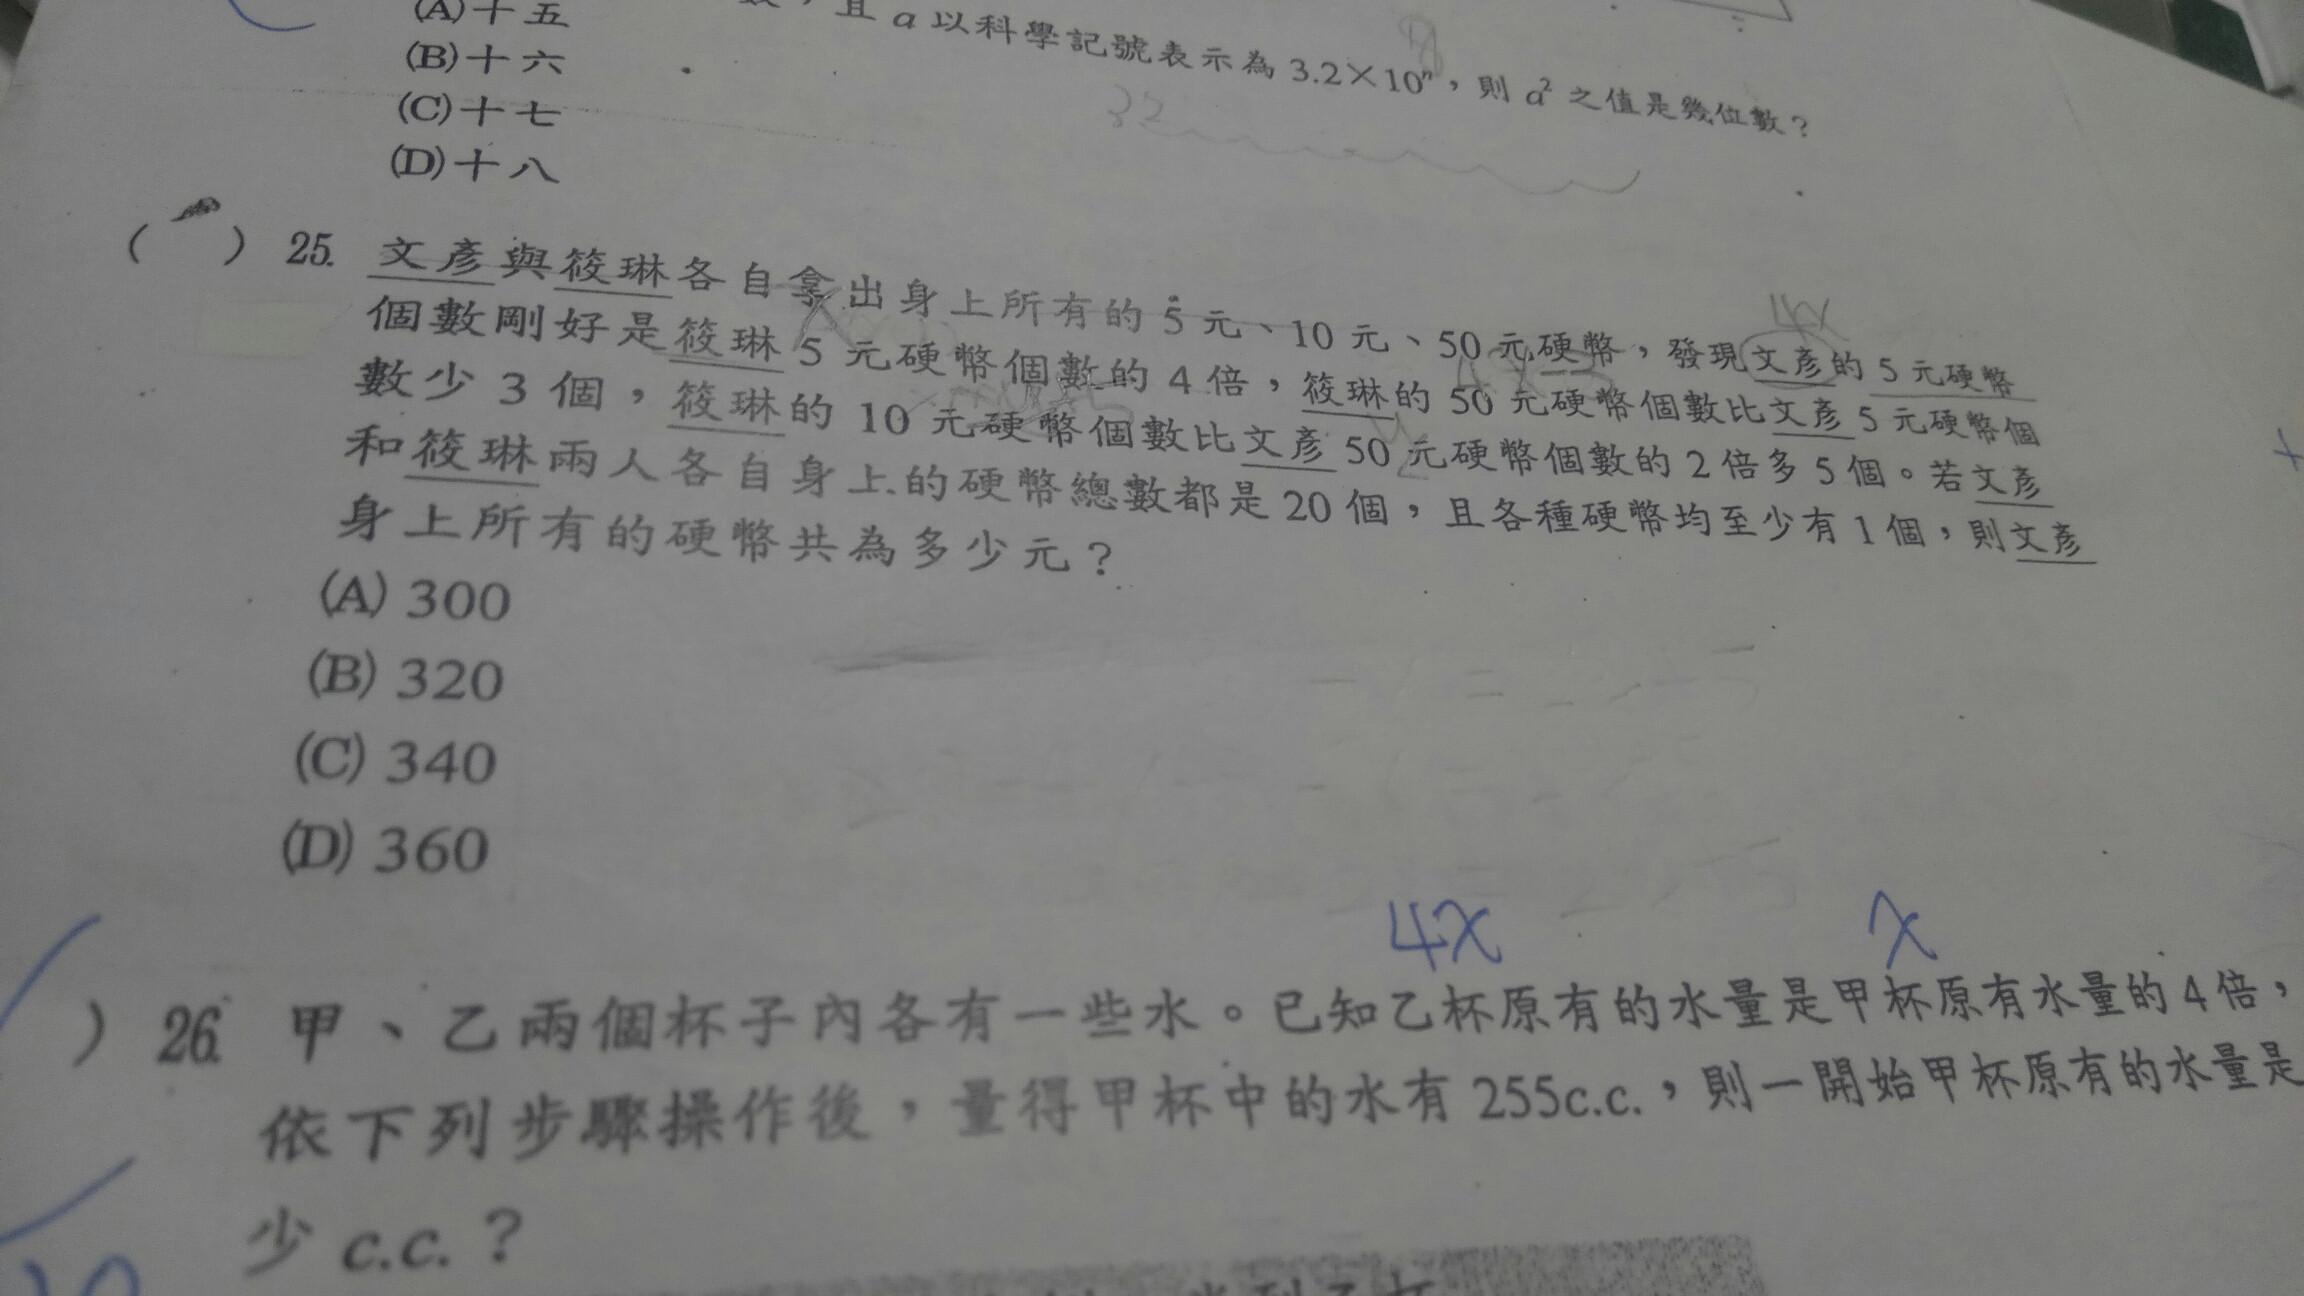 (A)十五
且 a 以科學記號表示為 3.2×10ⁿ，則 a² 之值是幾位數？
(B)十六
(C)十七
32
(D)十八
( ) 25. 文彥與筱琳各自拿出身上所有的 5 元、10 元、50 元硬幣，發現文彥的 5 元硬幣
4x
個數剛好是筱琳 5 元硬幣個數的 4 倍，筱琳的 50 元硬幣個數比文彥 5 元硬幣個
數少 3 個，筱琳的 10 元硬幣個數比文彥 50 元硬幣個數的 2 倍多 5 個。若文彥
和筱琳兩人各自身上的硬幣總數都是 20 個，且各種硬幣均至少有 1 個，則文彥
身上所有的硬幣共為多少元？
(A) 300
(B) 320
(C) 340
(D) 360
4x
x
) 26. 甲、乙兩個杯子內各有一些水。已知乙杯原有的水量是甲杯原有水量的 4 倍，
依下列步驟操作後，量得甲杯中的水有 255c.c.，則一開始甲杯原有的水量是
少 c.c.？